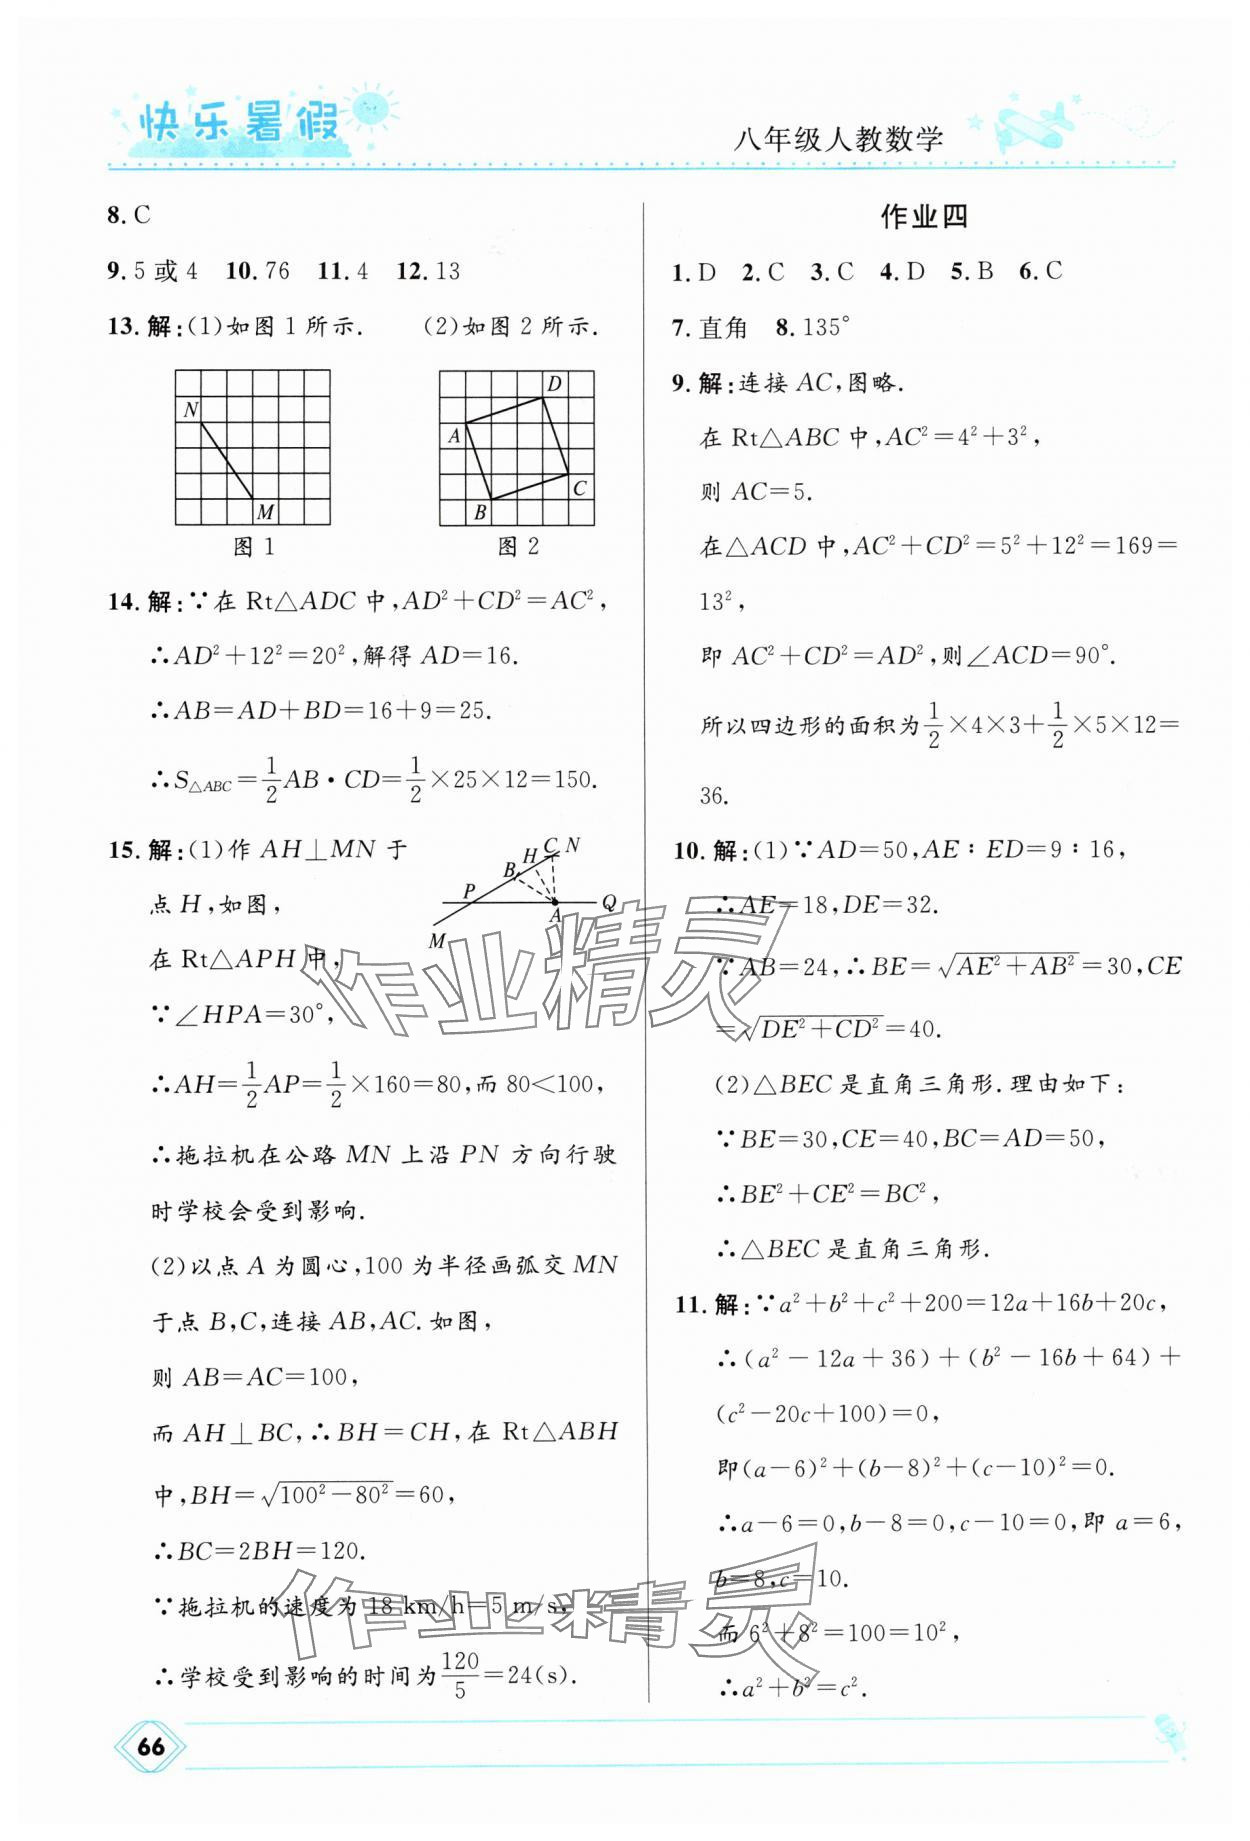 快乐暑假
八年级人教数学
8. C
9. 5或4 10. 76 11. 4 12. 13
13. 解:(1)如图1所示. (2)如图2所示.
N
M
图1
D
A
C
B
图2
14. 解:∵在 Rt△ADC 中,AD²+CD²=AC²,
∴AD²+12²=20²,解得 AD=16.
∴AB=AD+BD=16+9=25.
∴S△ABC=1/2AB·CD=1/2×25×12=150.
15. 解:(1)作 AH⊥MN 于
点 H,如图,
在 Rt△APH 中,
∵∠HPA=30°,
H C N
B
P
A
Q
M
∴AH=1/2AP=1/2×160=80,而 80<100,
∴拖拉机在公路 MN 上沿 PN 方向行驶
时学校会受到影响.
(2)以点 A 为圆心,100 为半径画弧交 MN
于点 B,C,连接 AB,AC.如图,
则 AB=AC=100,
而 AH⊥BC,∴BH=CH,在 Rt△ABH
中,BH=√(100²-80²)=60,
∴BC=2BH=120.
∵拖拉机的速度为 18 km/h=5 m/s,
∴学校受到影响的时间为120/5=24(s).
作业四
1. D 2. C 3. C 4. D 5. B 6. C
7. 直角 8. 135°
9. 解:连接 AC,图略.
在 Rt△ABC 中,AC²=4²+3²,
则 AC=5.
在△ACD 中,AC²+CD²=5²+12²=169=
13²,
即 AC²+CD²=AD²,则∠ACD=90°.
所以四边形的面积为1/2×4×3+1/2×5×12=
36.
10. 解:(1)∵AD=50,AE∶ED=9∶16,
∴AE=18,DE=32.
∵AB=24,∴BE=√(AE²+AB²)=30,CE
=√(DE²+CD²)=40.
(2)△BEC 是直角三角形.理由如下:
∵BE=30,CE=40,BC=AD=50,
∴BE²+CE²=BC²,
∴△BEC 是直角三角形.
11. 解:∵a²+b²+c²+200=12a+16b+20c,
∴(a²-12a+36)+(b²-16b+64)+
(c²-20c+100)=0,
即(a-6)²+(b-8)²+(c-10)²=0.
∴a-6=0,b-8=0,c-10=0,即 a=6,
b=8,c=10.
而 6²+8²=100=10²,
∴a²+b²=c².
作业精灵
作业精灵
66